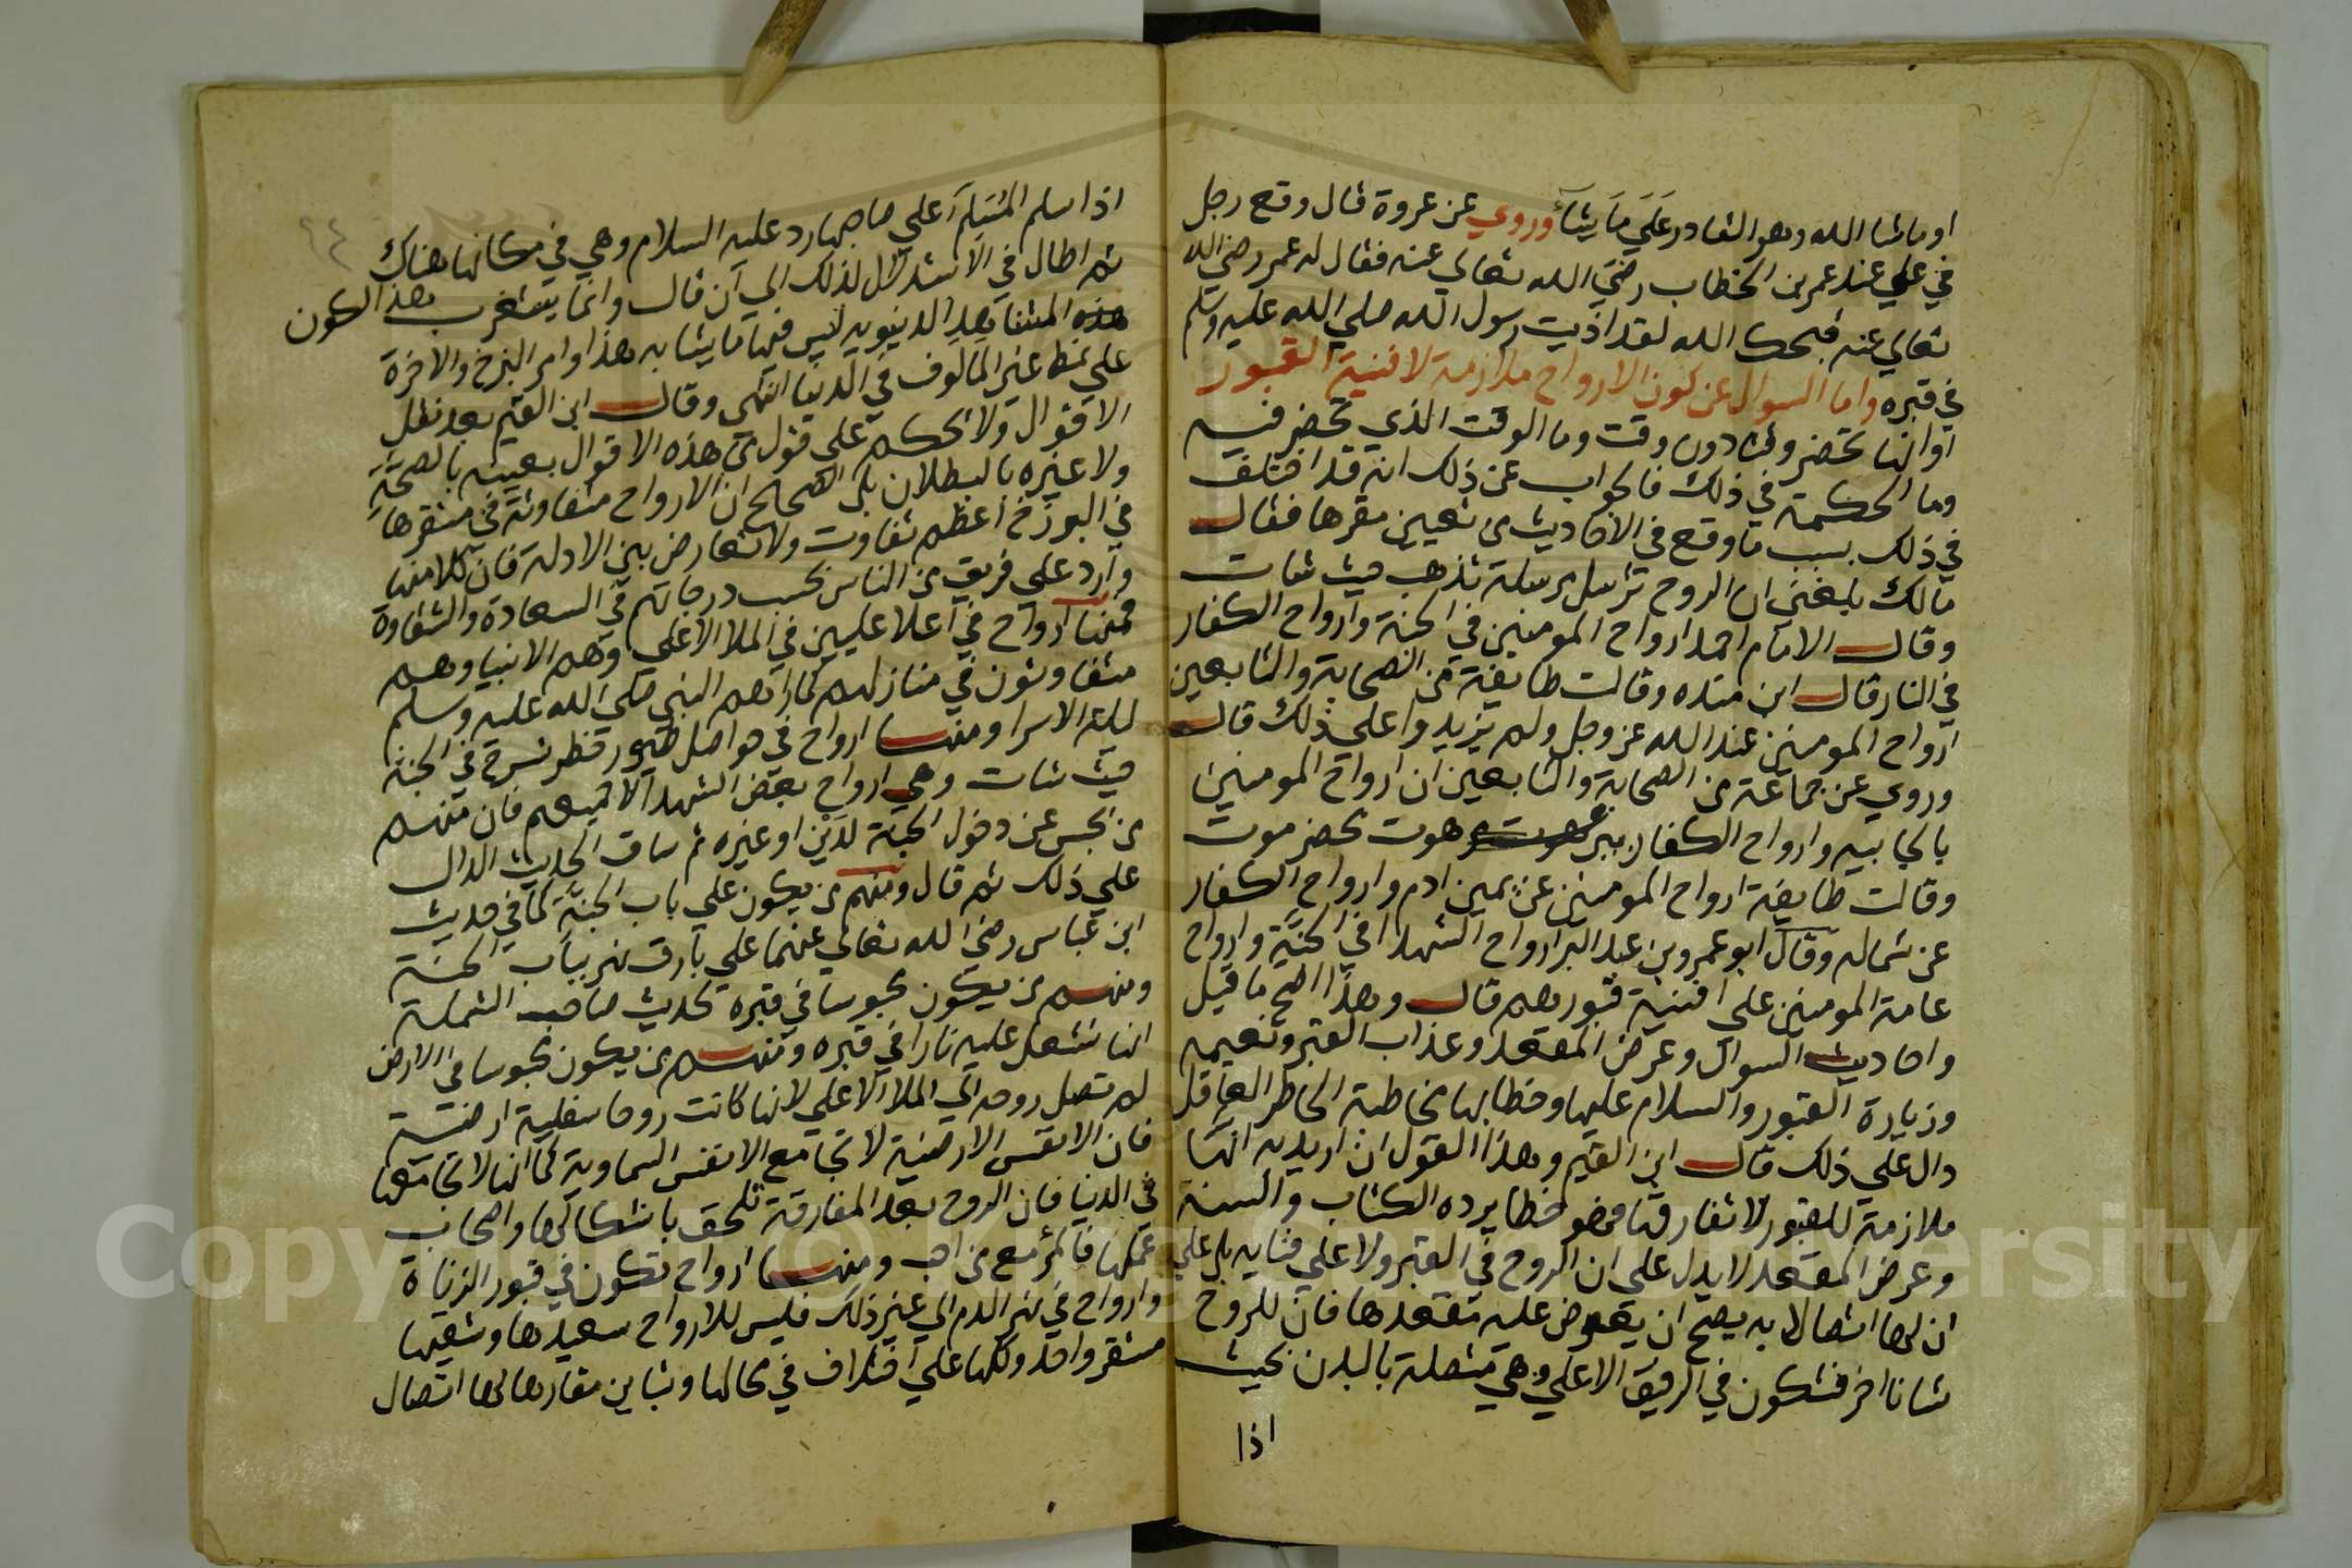 او ما شا الله وهو القادر عَلَى مَا يَشَآء وروي عن عروة قال وقع رجل
في علي عند عمر بن الخطاب رضي الله تعالي عنه فقال له عمر رضي الله
تعالي عنه قبحك الله لقد اذيت رسول الله صلي الله عليه وسلم
في قبره واما السوال عن كون الارواح ملازمة لافنية القبور
او انها تحضر وقتا دون وقت وما الوقت الذي تحضر فيه
وما الحكمة في ذلك فالجواب عن ذلك انه قد اختلف
في ذلك بسبب ما وقع في الاحاديث من تعيين مقرها فقال
مالك بلغني ان الروح ترسل مرسلة تذهب حيث شات
وقال الامام احمد ارواح المومنين في الجنة وارواح الكفار
في النار قال ابن منده وقالت طايفة من الصحابة والتابعين
ارواح المومنين عند الله عز وجل ولم يزيدوا على ذلك قال
وروي عن جماعة من الصحابة والتابعين ان ارواح المومنين
بالجابيه وارواح الكفار ببرهوت بحضرموت
وقالت طايفة ارواح المومنين عن يمين ادم وارواح الكفار
عن شماله وقال ابو عمرو بن عبد البر ارواح الشهدا في الجنة وارواح
عامة المومنين علي افنية قبورهم قال وهذا اصح ما قيل
واحاديث السوال وعرض المقعد وعذاب القبر ونعيمه
وزيارة القبور والسلام عليها وخطابها مخاطبة الحاضر العاقل
دال علي ذلك قال ابن القيم وهذا القول ان اريد به انها
ملازمة للقبور لا تفارقها فهو خطا يرده الكتاب والسنة
وعرض المقعد لا يدل على ان الروح في القبر ولا علي فنايه بل علي
ان لها اتصالا به يصح ان يعرض عليه مقعدها فان للروح
شانا اخر فتكون في الرفيق الاعلي وهي متصلة بالبدن بحيث
اذا
٦٤
اذا سلم المُسَلِّم علي صاحبها رد عليه السلام وهي في مكانها هناك
ثم اطال في الاستدلال لذلك الي ان قال وانما يستغرب هذا لكون
هذه المشاهد الدنيويه ليس فيها ما يشابه هذا وامر البرزخ والاخرة
علي نمط غير المالوف في الدنيا انتهي وقال ابن القيم بعد نقل
الاقوال ولا يحكم علي قول من هذه الاقوال بعينه بالصحة
ولا غيره بالبطلان بل الصحيح ان الارواح متفاوتة في مستقرها
في البرزخ اعظم تفاوت ولا تعارض بين الادلة فان كلا منها
وارد علي فريق من الناس بحسب درجاتهم في السعادة والشقاوة
فمنها ارواح في اعلا عليين في الملا الاعلي وهم الانبيا وهم
متفاوتون في منازلهم كما راهم النبي صلي الله عليه وسلم
ليلة الاسرا ومنها ارواح في حواصل طيور خضر تسرح في الجنة
حيث شات وهي ارواح بعض الشهدا لا جميعهم فان منهم
من يحبس عن دخول الجنة لدين او غيره ثم ساق الحديث الدال
علي ذلك ثم قال ومنهم من يكون علي باب الجنة كما في حديث
ابن عباس رضي الله تعالي عنهما علي بارق نهر بباب الجنة
ومنهم من يكون محبوسا في قبره لحديث صاحب الشملة
انها تشتعل عليه نارا في قبره ومنهم من يكون محبوسا في الارض
لم تصل روحه الي الملا الاعلي لانها كانت روحا سفلية ارضية
فان الانفس الارضية لا تجامع الانفس السماوية كما انها لا تجامعها
في الدنيا فان الروح بعد المفارقة تلحق باشكالها واصحاب
عملها فالمرء مع من احب ومنها ارواح تكون في قبور الزناة
وارواح في نهر الدم الي غير ذلك فليس للارواح سعيدها وشقيها
مستقر واحد وكلها علي اختلاف في محالها وتباين مقارها لها اتصال